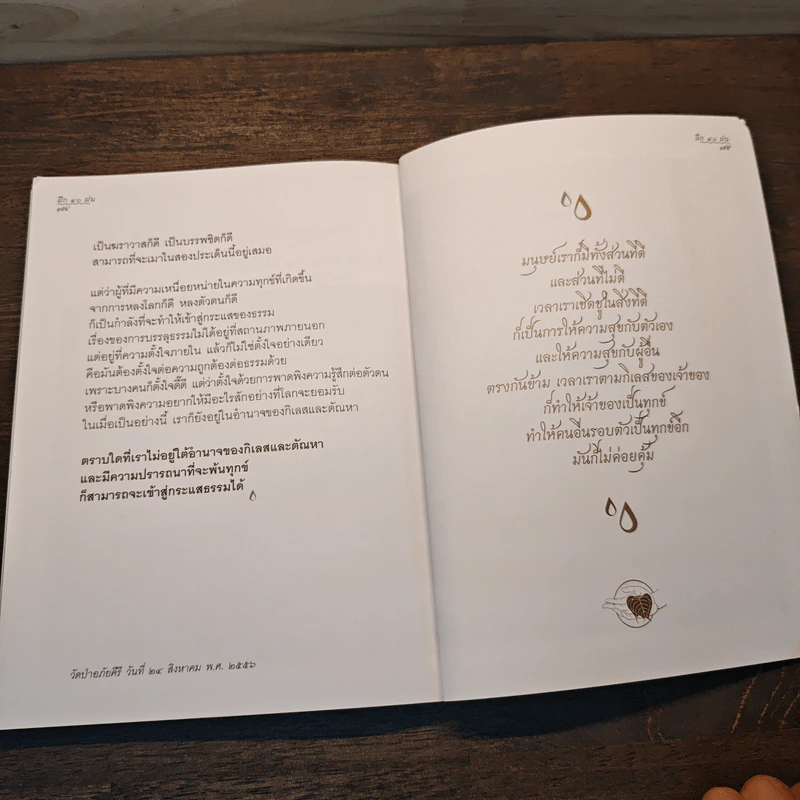 ฝึก ๔๐ ฝน
เป็นฆราวาสก็ดี เป็นบรรพชิตก็ดี
สามารถที่จะเมาในสองประเด็นนี้อยู่เสมอ
แต่ว่าผู้ที่มีความเหนื่อยหน่ายในความทุกข์ที่เกิดขึ้น
จากการหลงโลกก็ดี หลงตัวตนก็ดี
ก็เป็นกำลังที่จะทำให้เข้าสู่กระแสของธรรม
เรื่องของการบรรลุธรรมไม่ได้อยู่ที่สถานภาพภายนอก
แต่อยู่ที่ความตั้งใจภายใน แล้วก็ไม่ใช่ตั้งใจอย่างเดียว
คือมันต้องตั้งใจต่อความถูกต้องต่อธรรมด้วย
เพราะบางคนก็ตั้งใจดี๊ดี แต่ว่าตั้งใจด้วยการพาดพิงความรู้สึกต่อตัวตน
หรือพาดพิงความอยากให้มีอะไรสักอย่างที่โลกจะยอมรับ
ในเมื่อเป็นอย่างนี้ เราก็ยังอยู่ในอำนาจของกิเลสและตัณหา
ตราบใดที่เราไม่อยู่ใต้อำนาจของกิเลสและตัณหา
และมีความปรารถนาที่จะพ้นทุกข์
ก็สามารถจะเข้าสู่กระแสธรรมได้
วัดป่าอภัยคีรี วันที่ ๒๔ สิงหาคม พ.ศ. ๒๕๕๖
ฝึก ๔๐ ฝน
มนุษย์เราก็มีทั้งส่วนที่ดี
และส่วนที่ไม่ดี
เวลาเราเชิดชูในสิ่งที่ดี
ก็เป็นการให้ความสุขกับตัวเอง
และให้ความสุขกับผู้อื่น
ตรงกันข้าม เวลาเราตามกิเลสของเจ้าของ
ก็ทำให้เจ้าของเป็นทุกข์
ทำให้คนอื่นรอบตัวเป็นทุกข์อีก
มันก็ไม่ค่อยคุ้ม